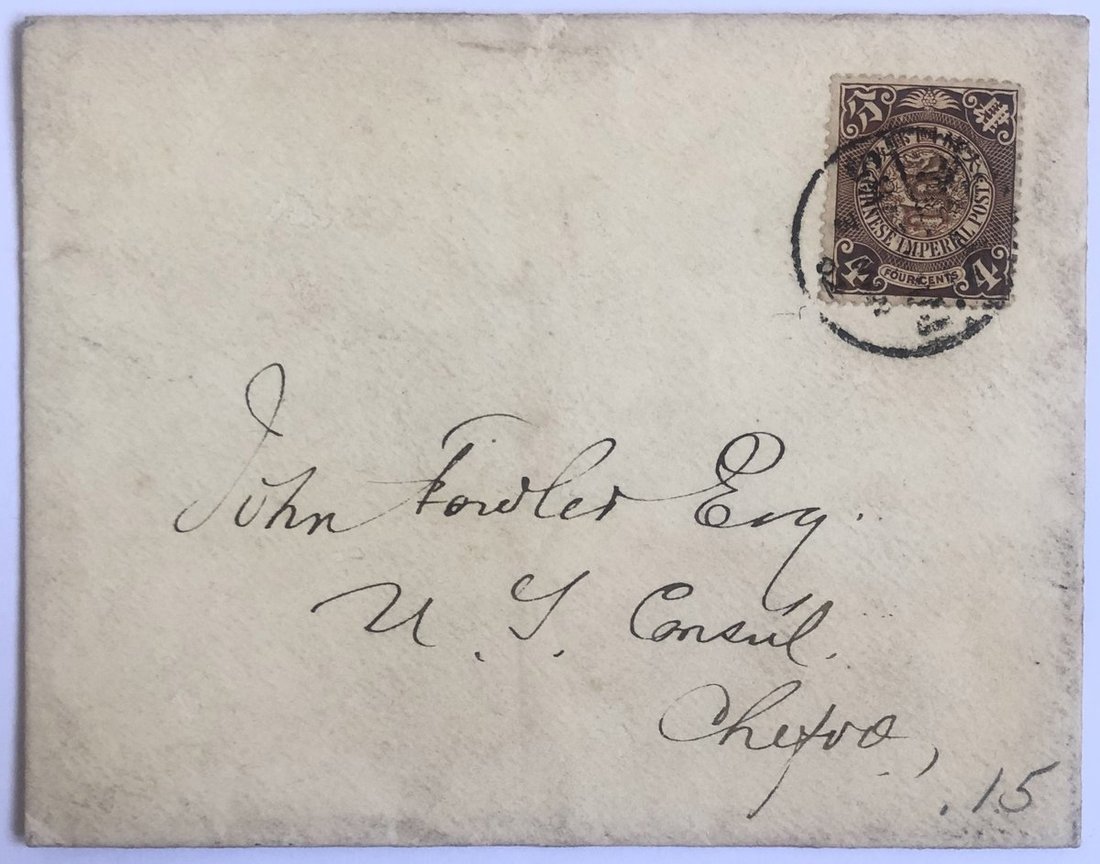 CHINESE IMPERIAL POST
4 FOUR CENTS 4
John Fowler Esq.
U. S. Consul.
Chefoo,
.15